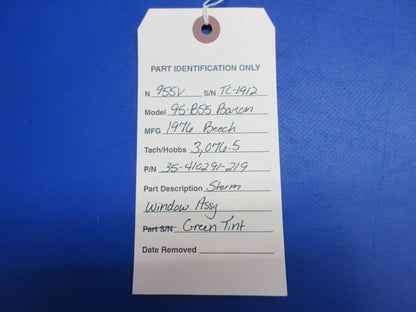 PART IDENTIFICATION ONLY
N 955V S/N TC-1912
Model 95-B55 Baron
MFG 1976 Beech
Tach/Hobbs 3,076.5
P/N 35-410291-219
Part Description Storm
Window Assy
Part S/N Green Tint
Date Removed